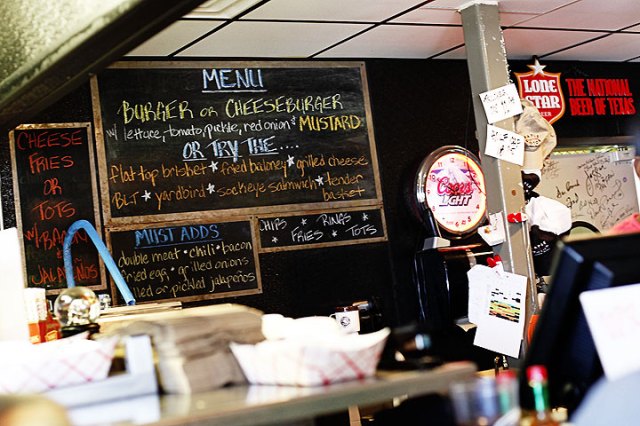 MENU
BURGER OR CHEESEBURGER
w/ lettuce, tomato, pickle, red onion & MUSTARD
OR TRY THE....
flat top brisket ★ fried baloney ★ grilled cheese
BLT ★ yardbird ★ sockeye salmwich ★ tender
basket
CHEESE
FRIES
OR
TOTS
w/ BACON
JALAPEÑOS
MUST ADDS
double meat • chili • bacon
fried egg • grilled onions
or pickled jalapeños
CHIPS ★ RINGS
FRIES ★ TOTS
Coors
LIGHT
LONE
STAR
BEER
THE NATIONAL
BEER OF TEXAS